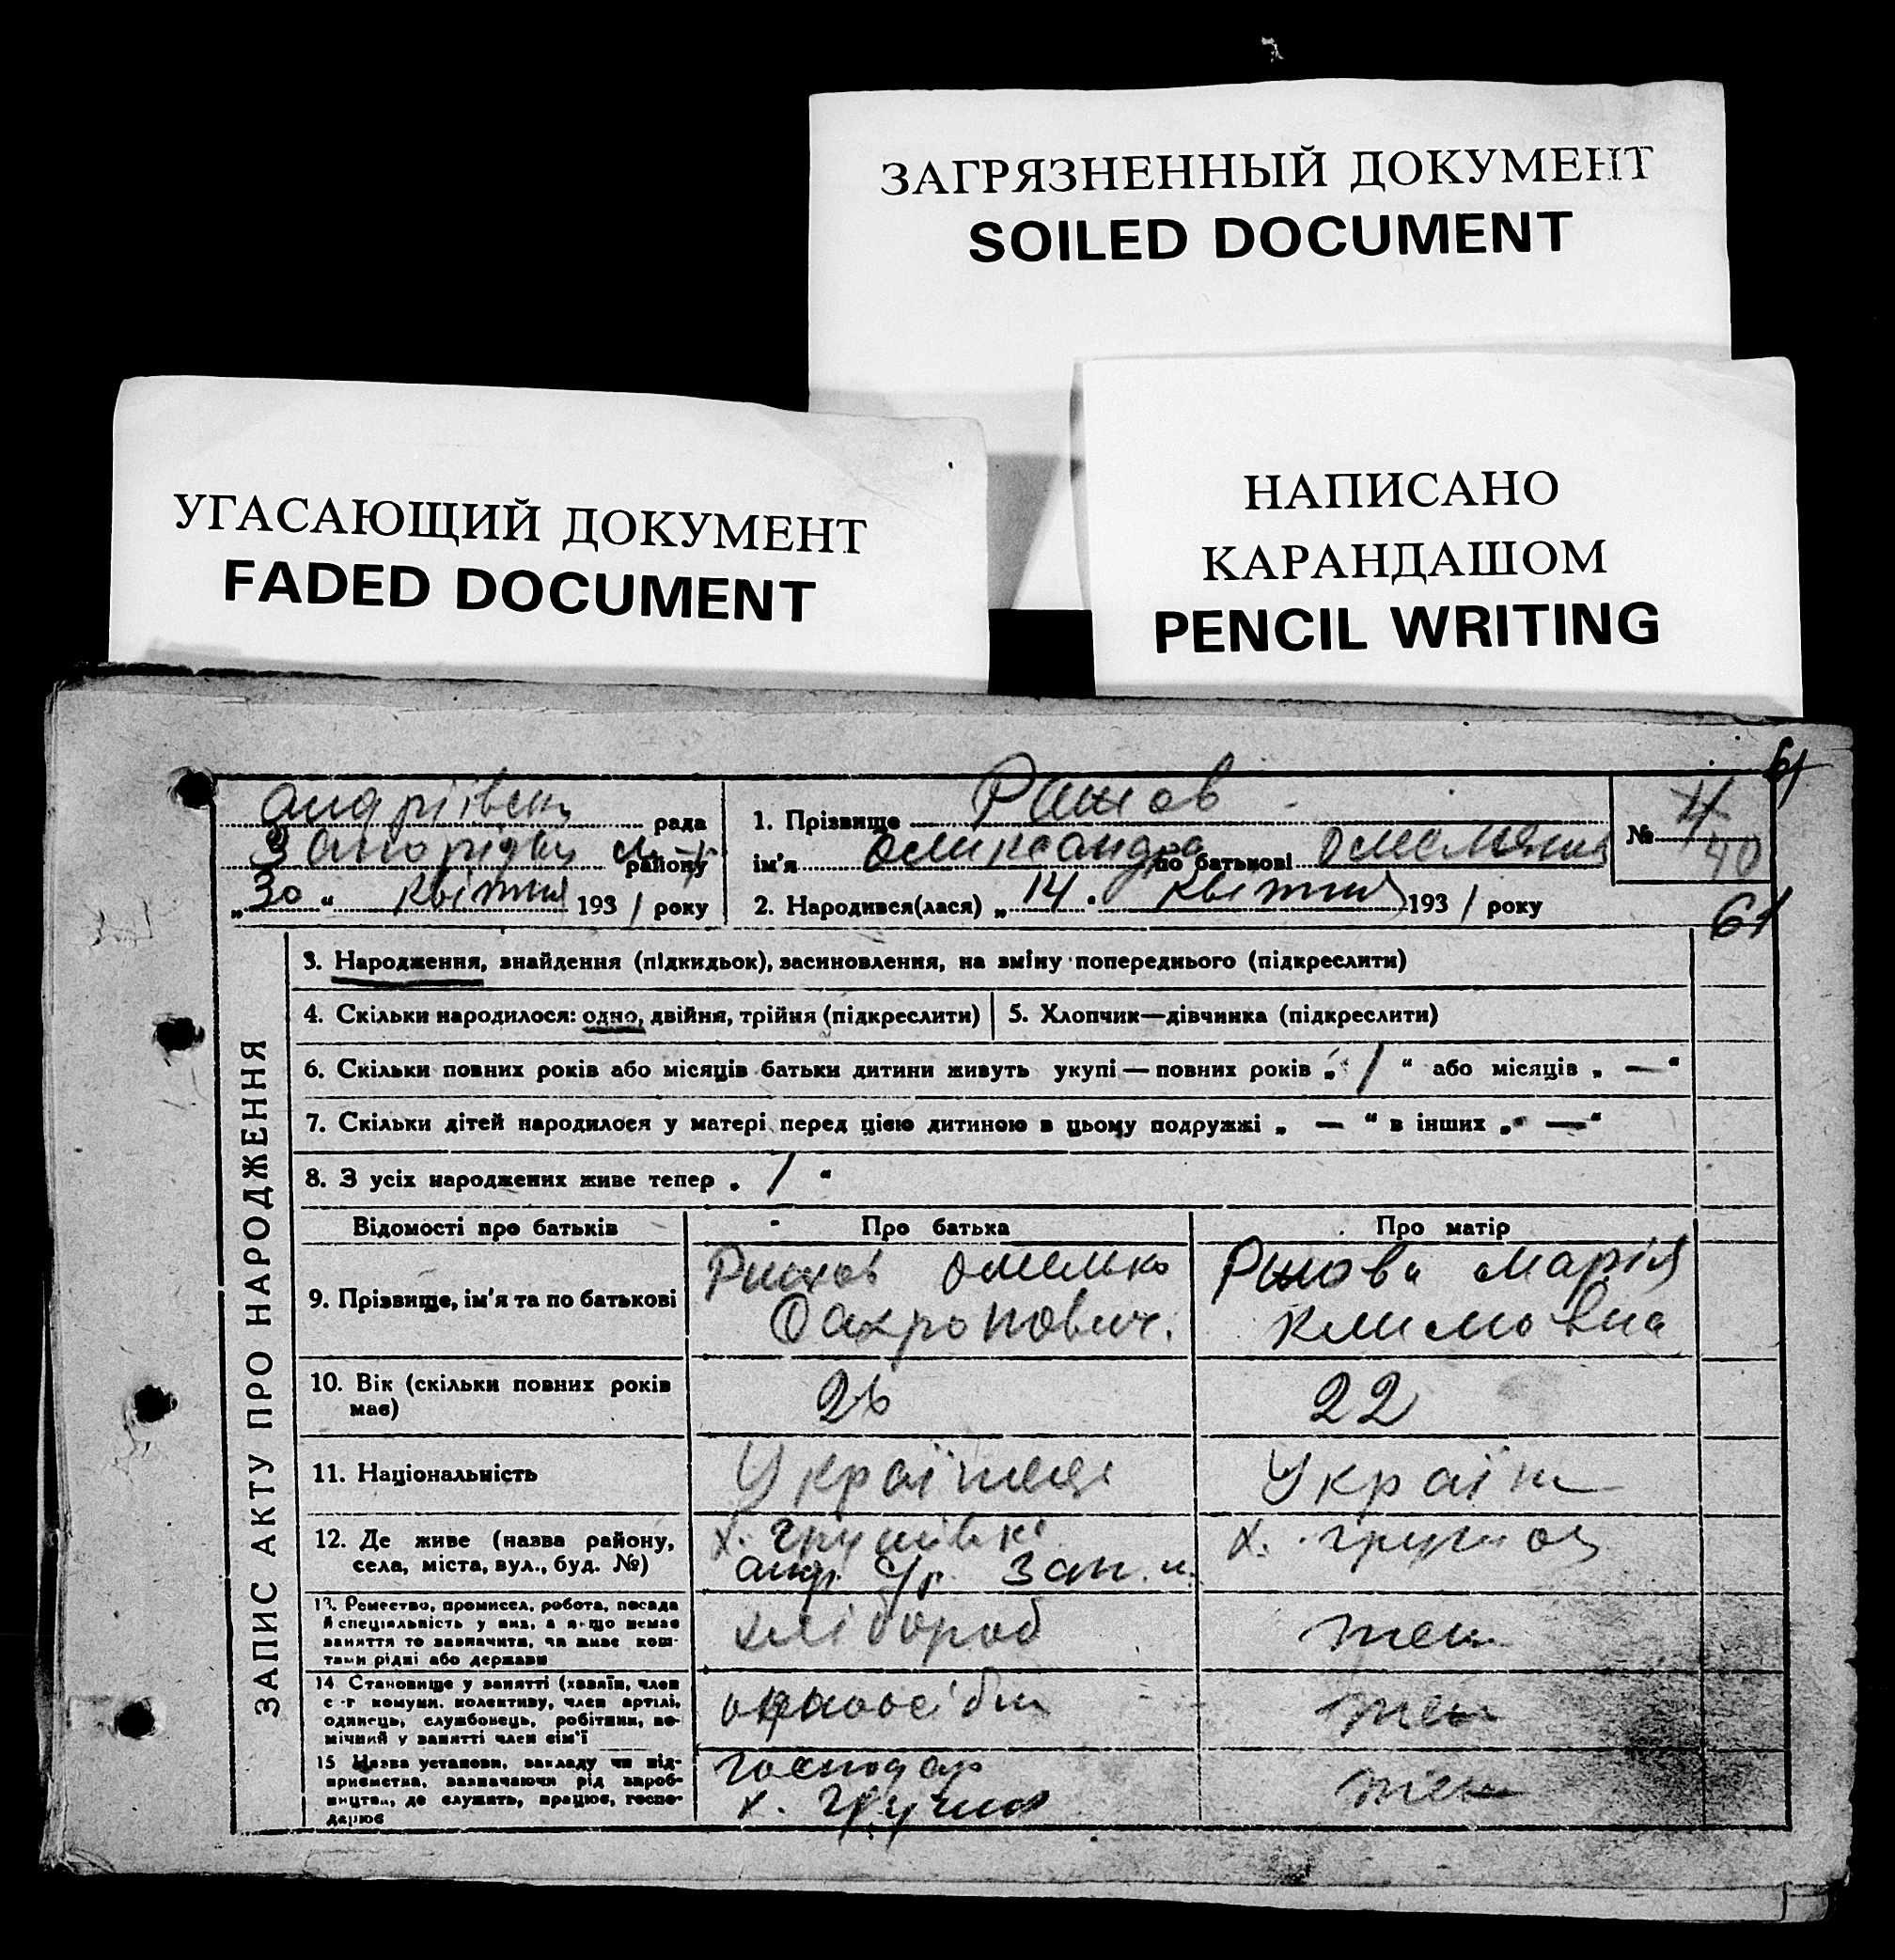 ЗАГРЯЗНЕННЫЙ ДОКУМЕНТ
SOILED DOCUMENT
УГАСАЮЩИЙ ДОКУМЕНТ
FADED DOCUMENT
НАПИСАНО
КАРАНДАШОМ
PENCIL WRITING
61
рада
району
„30“ квітня 1931 року
1. Прізвище
ім'я Олександра по батькові
2. Народився(лася) „14" квітня 1931 року
№ 4
40
61
ЗАПИС АКТУ ПРО НАРОДЖЕННЯ
3. Народження, знайдення (підкидьок), засиновлення, на зміну попереднього (підкреслити)
4. Скільки народилося: одно, двійня, трійня (підкреслити)
5. Хлопчик—дівчинка (підкреслити)
6. Скільки повних років або місяців батьки дитини живуть укупі — повних років „ 1 “ або місяців „ — “
7. Скільки дітей народилося у матері перед цією дитиною в цьому подружжі „ — “ в інших „ — “
8. З усіх народжених живе тепер „ 1 “
Відомості про батьків
Про батька
Про матір
9. Прізвище, ім'я та по батькові
Омелько
Марія
Климовна
10. Вік (скільки повних років має)
26
22
11. Національність
Українець
Україн
12. Де живе (назва району, села, міста, вул., буд. №)
х. Грушівк
Андр. с/р. Зап.
х.
13. Ремество, промисел, робота, посада й спеціяльність у них, а якщо немає заняття то зазначити, чи живе коштами рідні або держави
хлібороб
14. Становище у занятті (хазяїн, член с.-г. комуни, колективу, член артілі, одинець, службовець, робітник, помічний у занятті член сім'ї
15. Назва установи, закладу чи підприємства, зазначаючи рід виробництва, де служить, працює, господарює
господар
х.